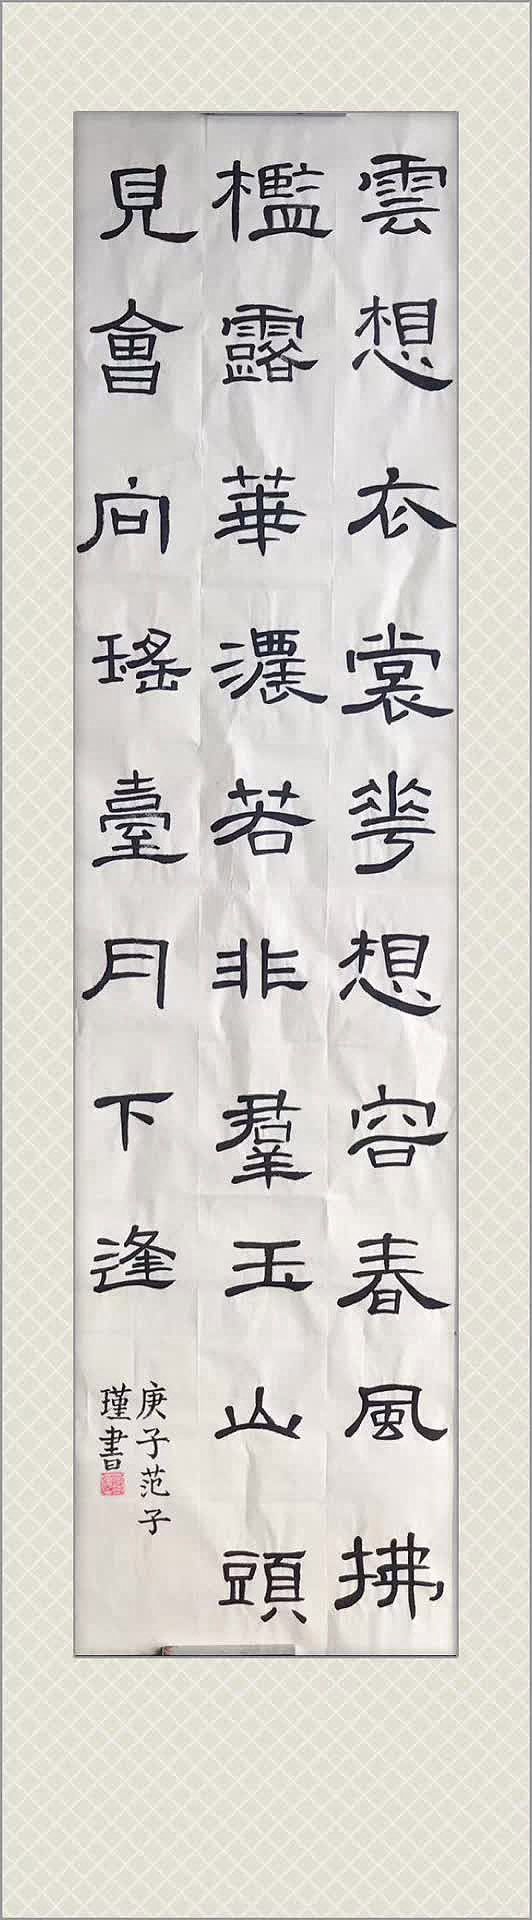 雲想衣裳花想容春風拂
檻露華濃若非羣玉山頭
見會向瑤臺月下逢
庚子范子
瑾書